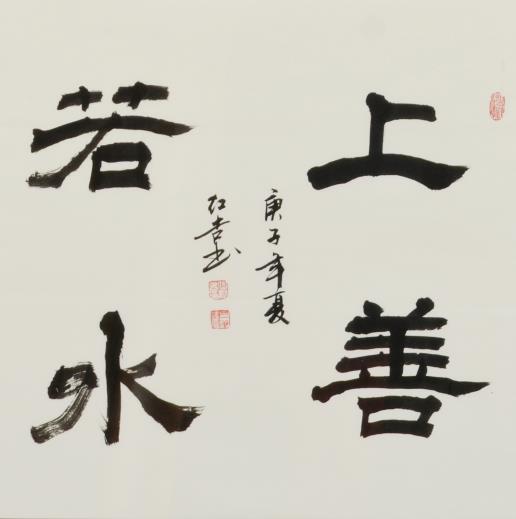 上善
若水
庚子年夏
红书